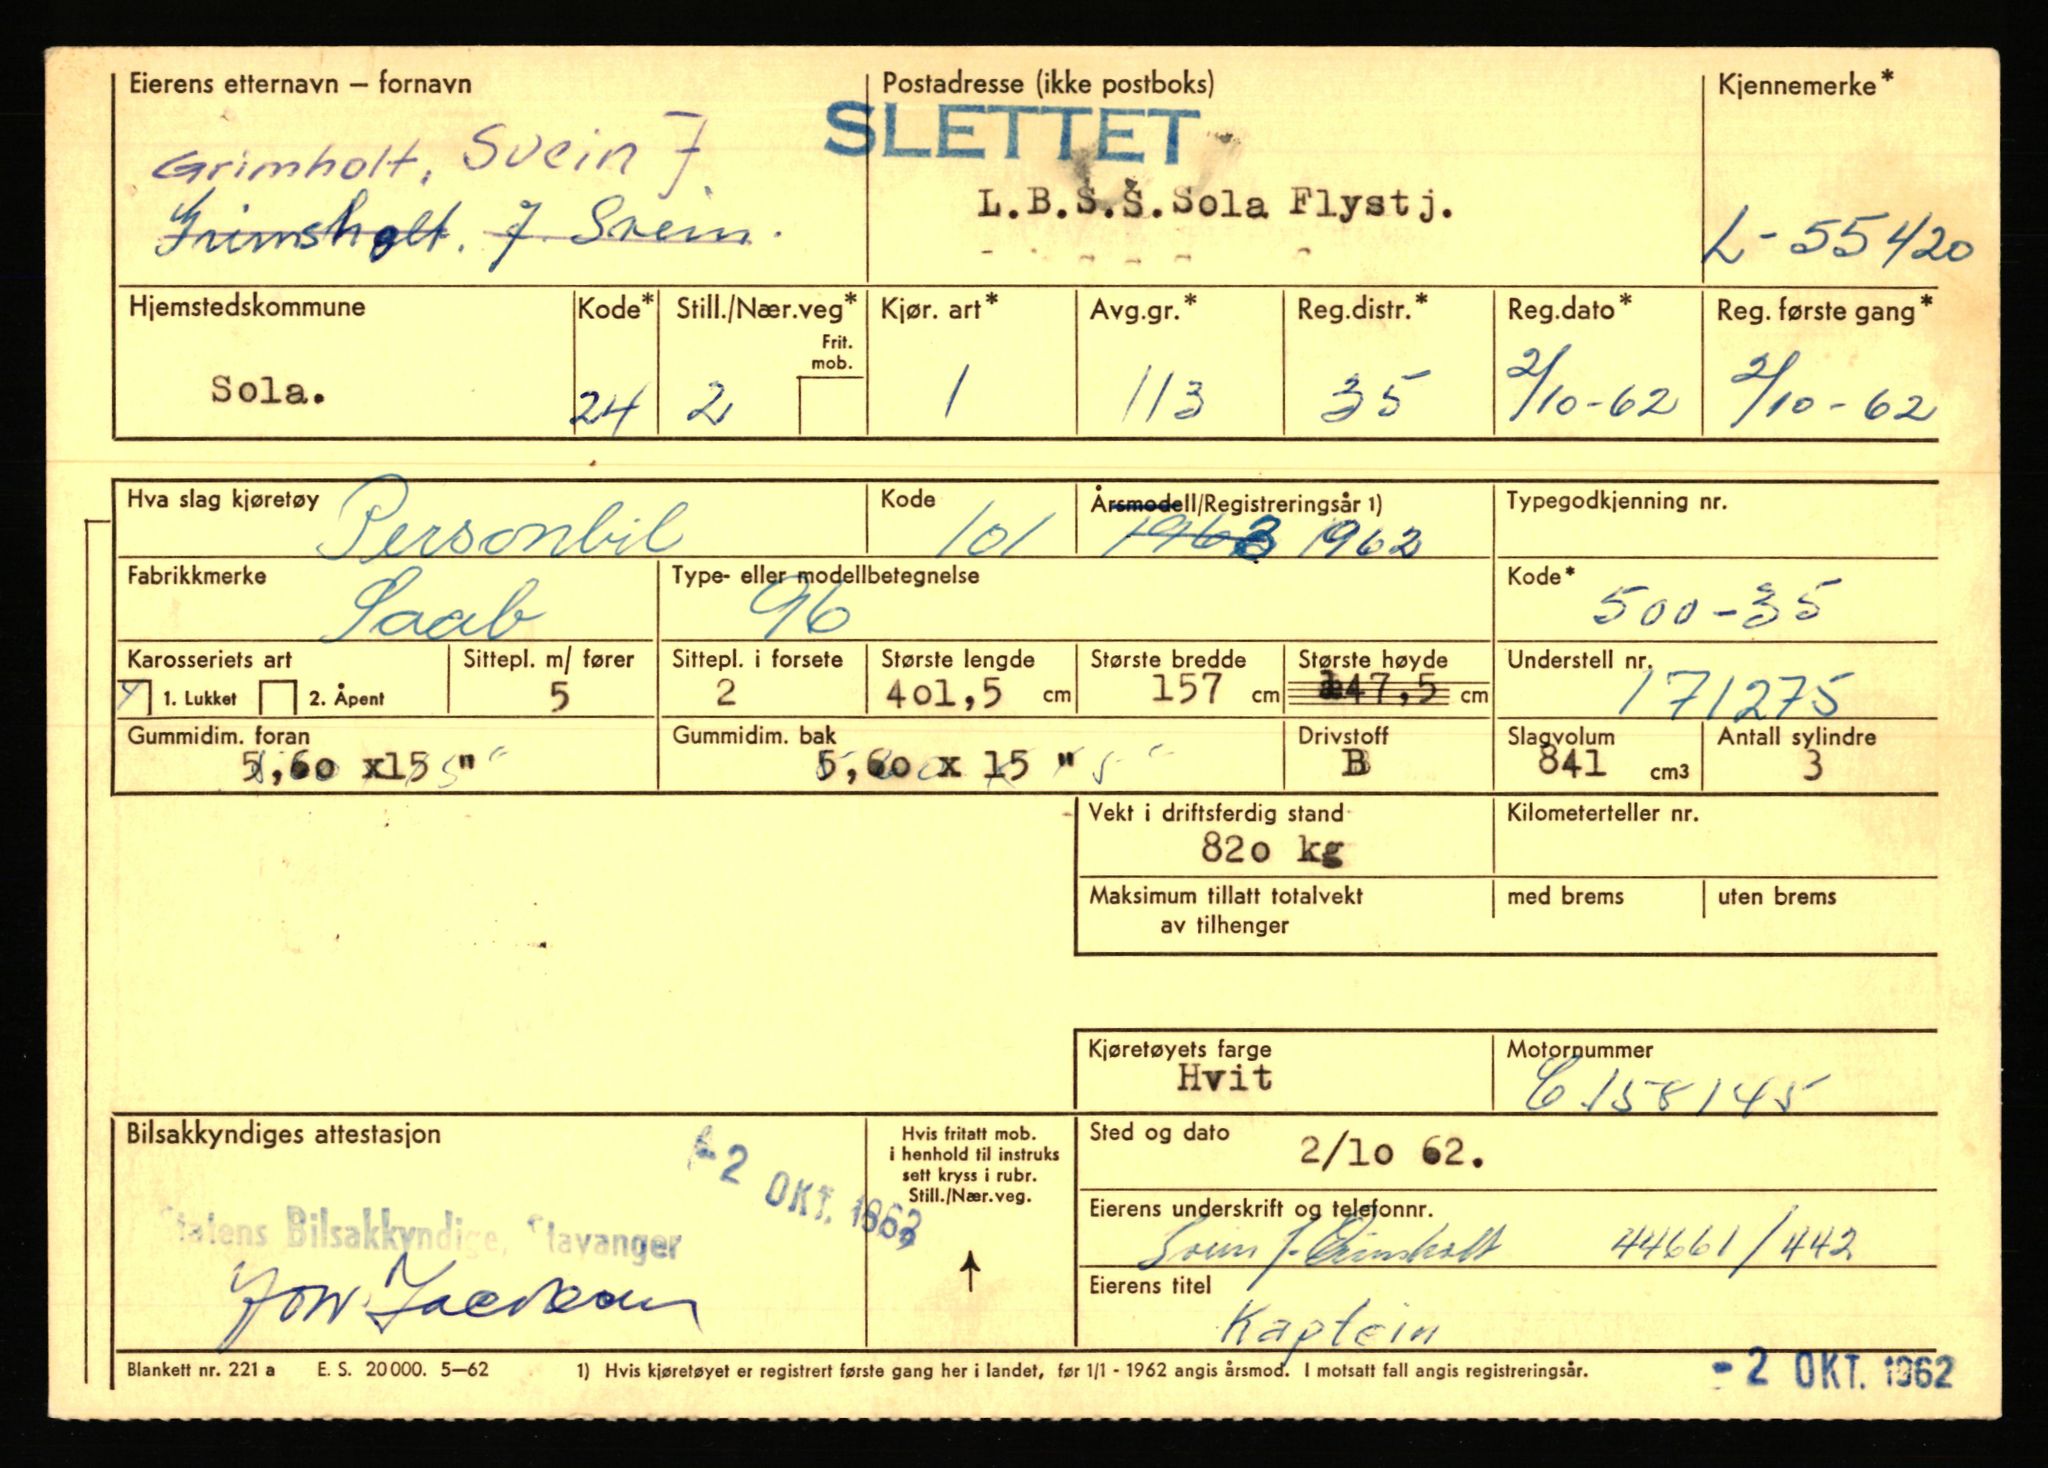 Eierens etternavn – fornavn
Postadresse (ikke postboks)
Kjennemerke*
SLETTET
Grimholt, Svein J
Grimsholt. J. Svein.
L.B.S.S. Sola Flystj.
L-55420
Hjemstedskommune
Kode*
Still./Nær.veg*
Frit.
mob.
Kjør. art*
Avg.gr.*
Reg.distr.*
Reg.dato*
Reg. første gang*
Sola.
24
2
1
113
35
2/10-62
2/10-62
Hva slag kjøretøy
Personbil
Kode
101
Årsmodell/Registreringsår 1)
1963 1962
Typegodkjenning nr.
Fabrikkmerke
Saab
Type- eller modellbetegnelse
96
Kode*
500-35
Karosseriets art
1. Lukket
2. Åpent
Sittepl. m/ fører
5
Sittepl. i forsete
2
Største lengde
401,5 cm
Største bredde
157 cm
Største høyde
147,5 cm
Understell nr.
171275
Gummidim. foran
5,60 x15 "
Gummidim. bak
5,60 x 15 "
Drivstoff
B
Slagvolum
841 cm3
Antall sylindre
3
Vekt i driftsferdig stand
820 kg
Kilometerteller nr.
Maksimum tillatt totalvekt
av tilhenger
med brems
uten brems
Kjøretøyets farge
Hvit
Motornummer
C 158145
Bilsakkyndiges attestasjon
-2 OKT. 1962
Statens Bilsakkyndige, Stavanger
Hvis fritatt mob.
i henhold til instruks
sett kryss i rubr.
Still./Nær.veg.
Sted og dato
2/10 62.
Eierens underskrift og telefonnr.
Svein J. Grimholt 44661/442
Eierens titel
Kaptein
Blankett nr. 221 a E. S. 20000. 5–62 1) Hvis kjøretøyet er registrert første gang her i landet, før 1/1 - 1962 angis årsmod. I motsatt fall angis registreringsår.
-2 OKT. 1962